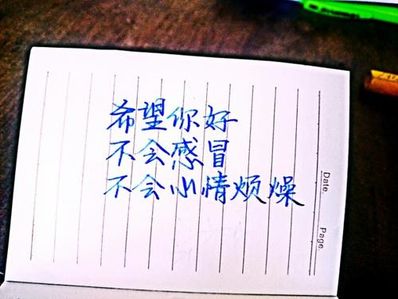 希望你好
不会感冒
不会小情烦燥
Date.
Page